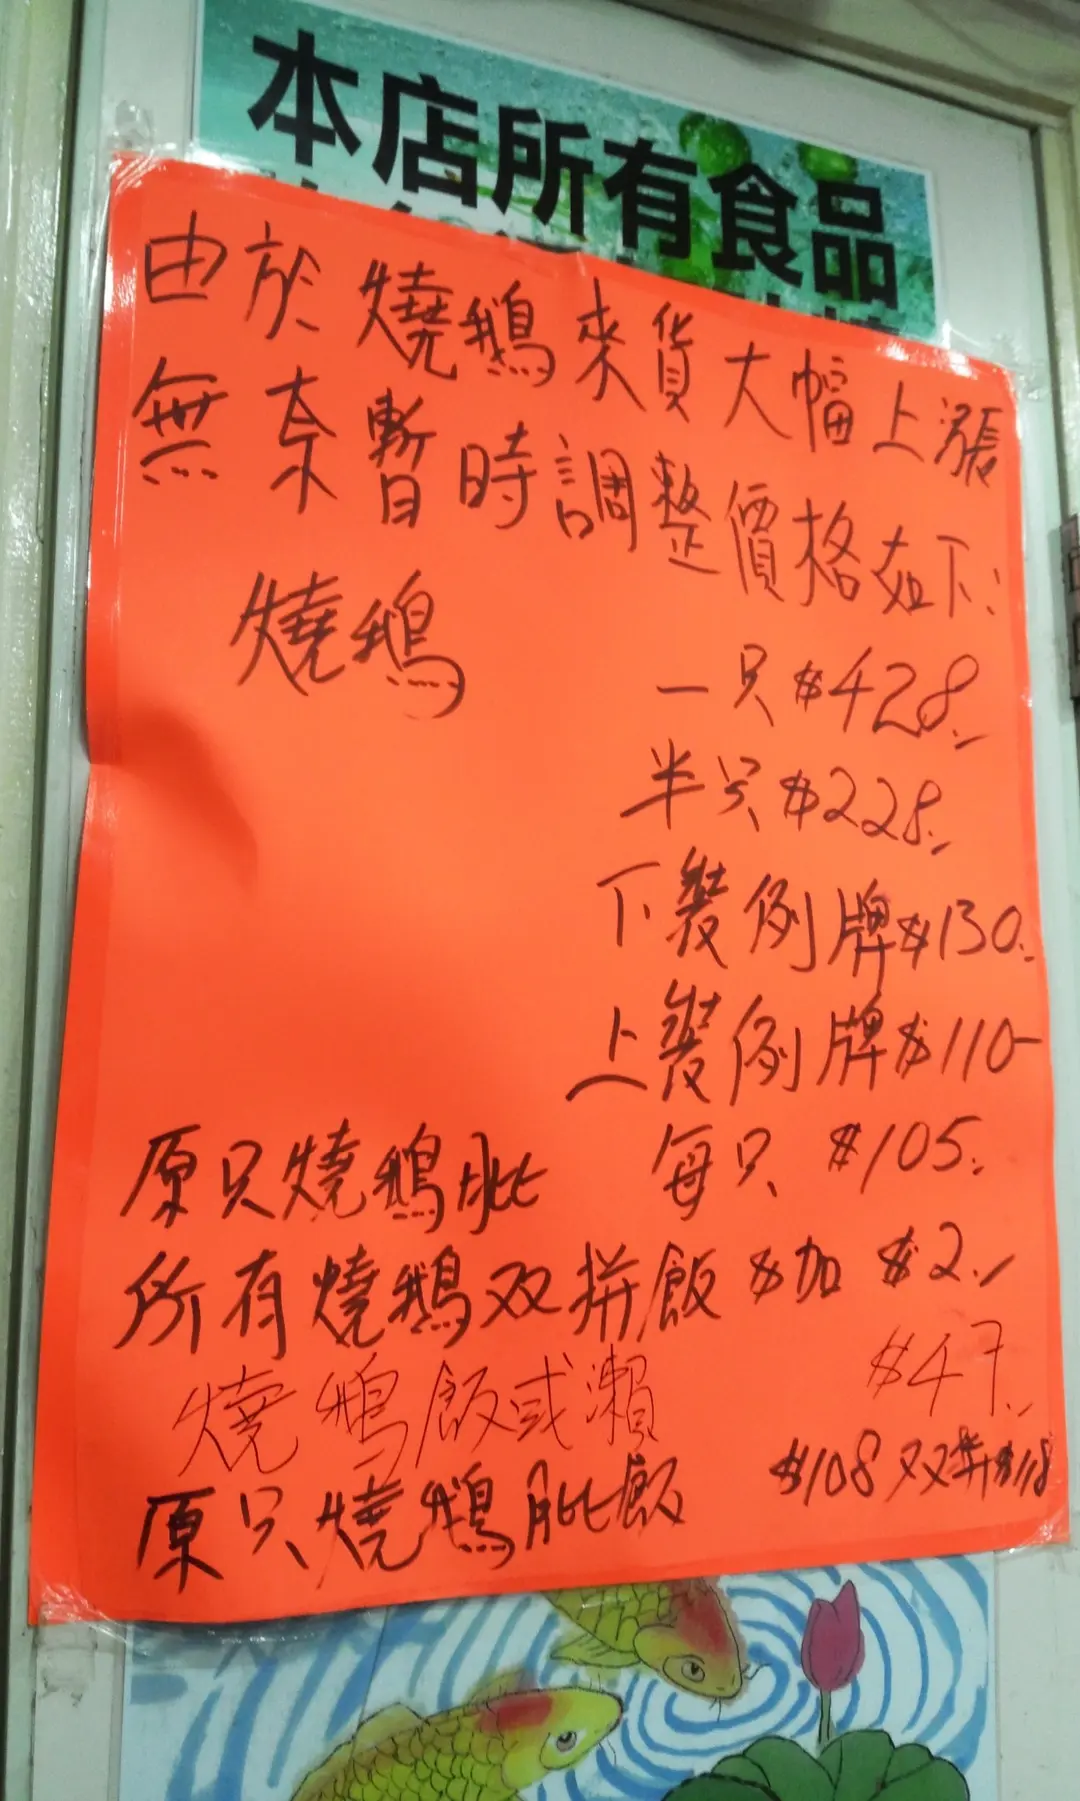 本店所有食品
由於燒鵝來貨大幅上漲
無奈暫時調整價格如下:
燒鵝 一只$428.-
半只$228.-
下裝例牌$130.-
上裝例牌$110-
原只燒鵝髀 每只 $105.-
所有燒鵝双拼飯$加 $2.-
燒鵝飯或瀨 $47.-
原只燒鵝髀飯 $108双拼$118